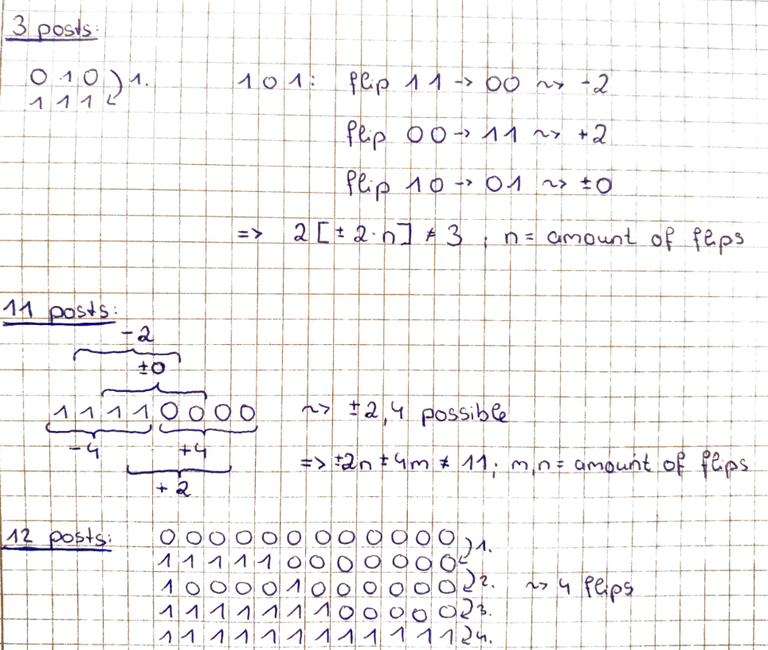 3 posts:
0 1 0 ) 1.   1 0 1 : flip 11 -> 00 ~> -2
1 1 1
flip 00 -> 11 ~> +2
flip 10 -> 01 ~> ±0
=> 2 [± 2·n] ≠ 3 ; n = amount of flips
11 posts:
-2
±0
1 1 1 1 0 0 0 0 ~> ±2,4 possible
-4 +4 => ±2n ± 4m ≠ 11; m,n = amount of flips
+2
12 posts: 0 0 0 0 0 0 0 0 0 0 0 0 1.
1 1 1 1 1 0 0 0 0 0 0 0
1 0 0 0 0 1 0 0 0 0 0 0 2. ~> 4 flips
1 1 1 1 1 1 1 0 0 0 0 0 3.
1 1 1 1 1 1 1 1 1 1 1 1 4.